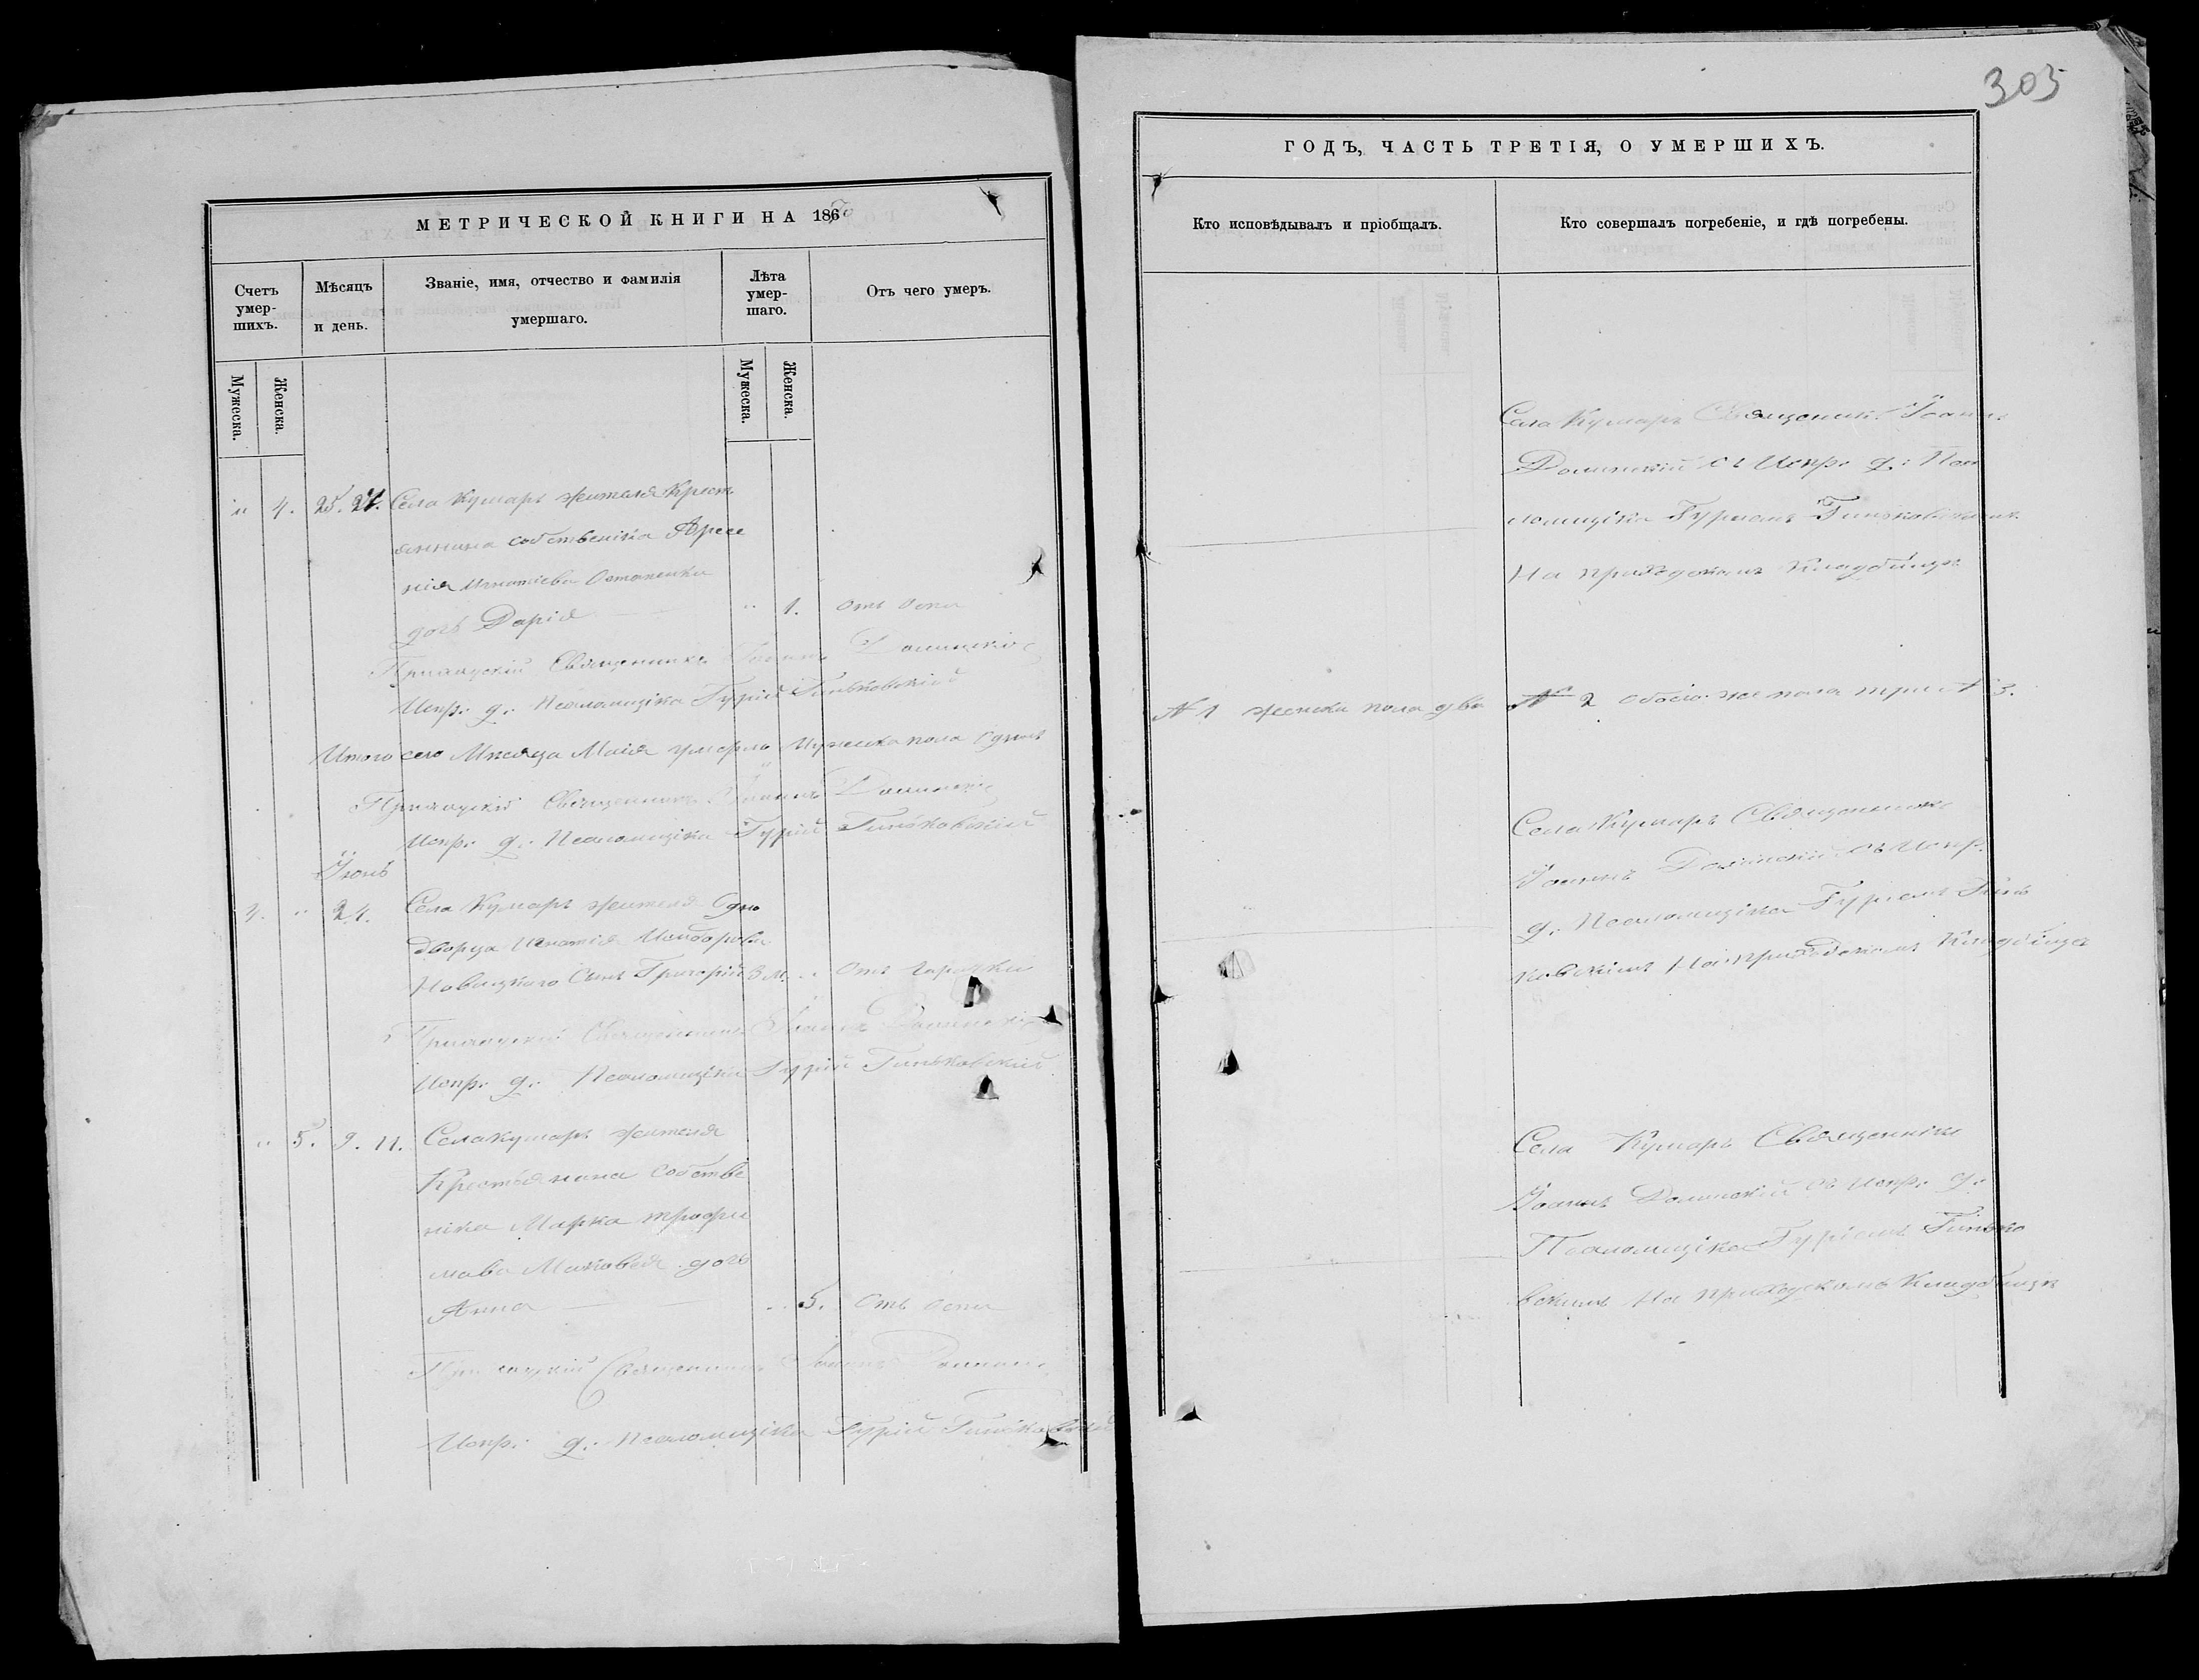 305
МЕТРИЧЕСКОЙ КНИГИ НА 1870
ГОДЪ, ЧАСТЬ ТРЕТІЯ, О УМЕРШИХЪ.
Счетъ умер-шихъ.
Мѣсяцъ и день.
Званіе, имя, отчество и фамилія умершаго.
Лѣта умер-шаго.
Отъ чего умеръ.
Мужеска.
Женска.
Мужеска.
Женска.
" 4. 25. 27. Села Кумаръ жителя Крест
янина собственіка Арсе
нія Игнатіева Остапенка
дочь Дарія " 1. отъ оспи
Приходскій Священникъ Іоаннъ Долинскій
Испр. д. Псаломщіка Гурій Гиньковскій
Итого сего Мѣсяца Маія умерло Мужеска пола одинъ
Приходскій Священникъ Іоаннъ Долинскій
Испр. д. Псаломщіка Гурій Гиньковскій
Іюнь
" 2. 4. Села Кумаръ жителя Одно
дворца Игнатія
Новицкого Сынъ Григорій 3 м. " Отъ
Приходскій Священникъ Іоаннъ Долинскій
Испр. д. Псаломщіка Гурій Гиньковскій
" 5. 9. 11. Села Кумаръ жителя
Крестьянина Собстве
ніка Марка Трофи
мова Маковея дочь
Анна " 5. Отъ оспи
Приходскій Священникъ Іоаннъ Долинскій
Испр. д. Псаломщіка Гурій Гиньковскій
Кто исповѣдывалъ и пріобщалъ.
Кто совершалъ погребеніе, и гдѣ погребены.
Села Кумаръ Священникъ Іоаннъ
Долинскій съ Испр. д. Пса
ломщіка Гуріемъ Гиньковскимъ
На приходскомъ Кладбищѣ
№ 1 женска пола два № 2 обоего же пола три № 3.
Села Кумаръ Священникъ
Іоаннъ Долинскій съ Испр.
д. Псаломщіка Гуріемъ Гинь
ковскимъ На приходскомъ Кладбищѣ
Села Кумаръ Священникъ
Іоаннъ Долинскій съ Испр. д.
Псаломщіка Гуріемъ Гинько
вскимъ На приходскомъ Кладбищѣ